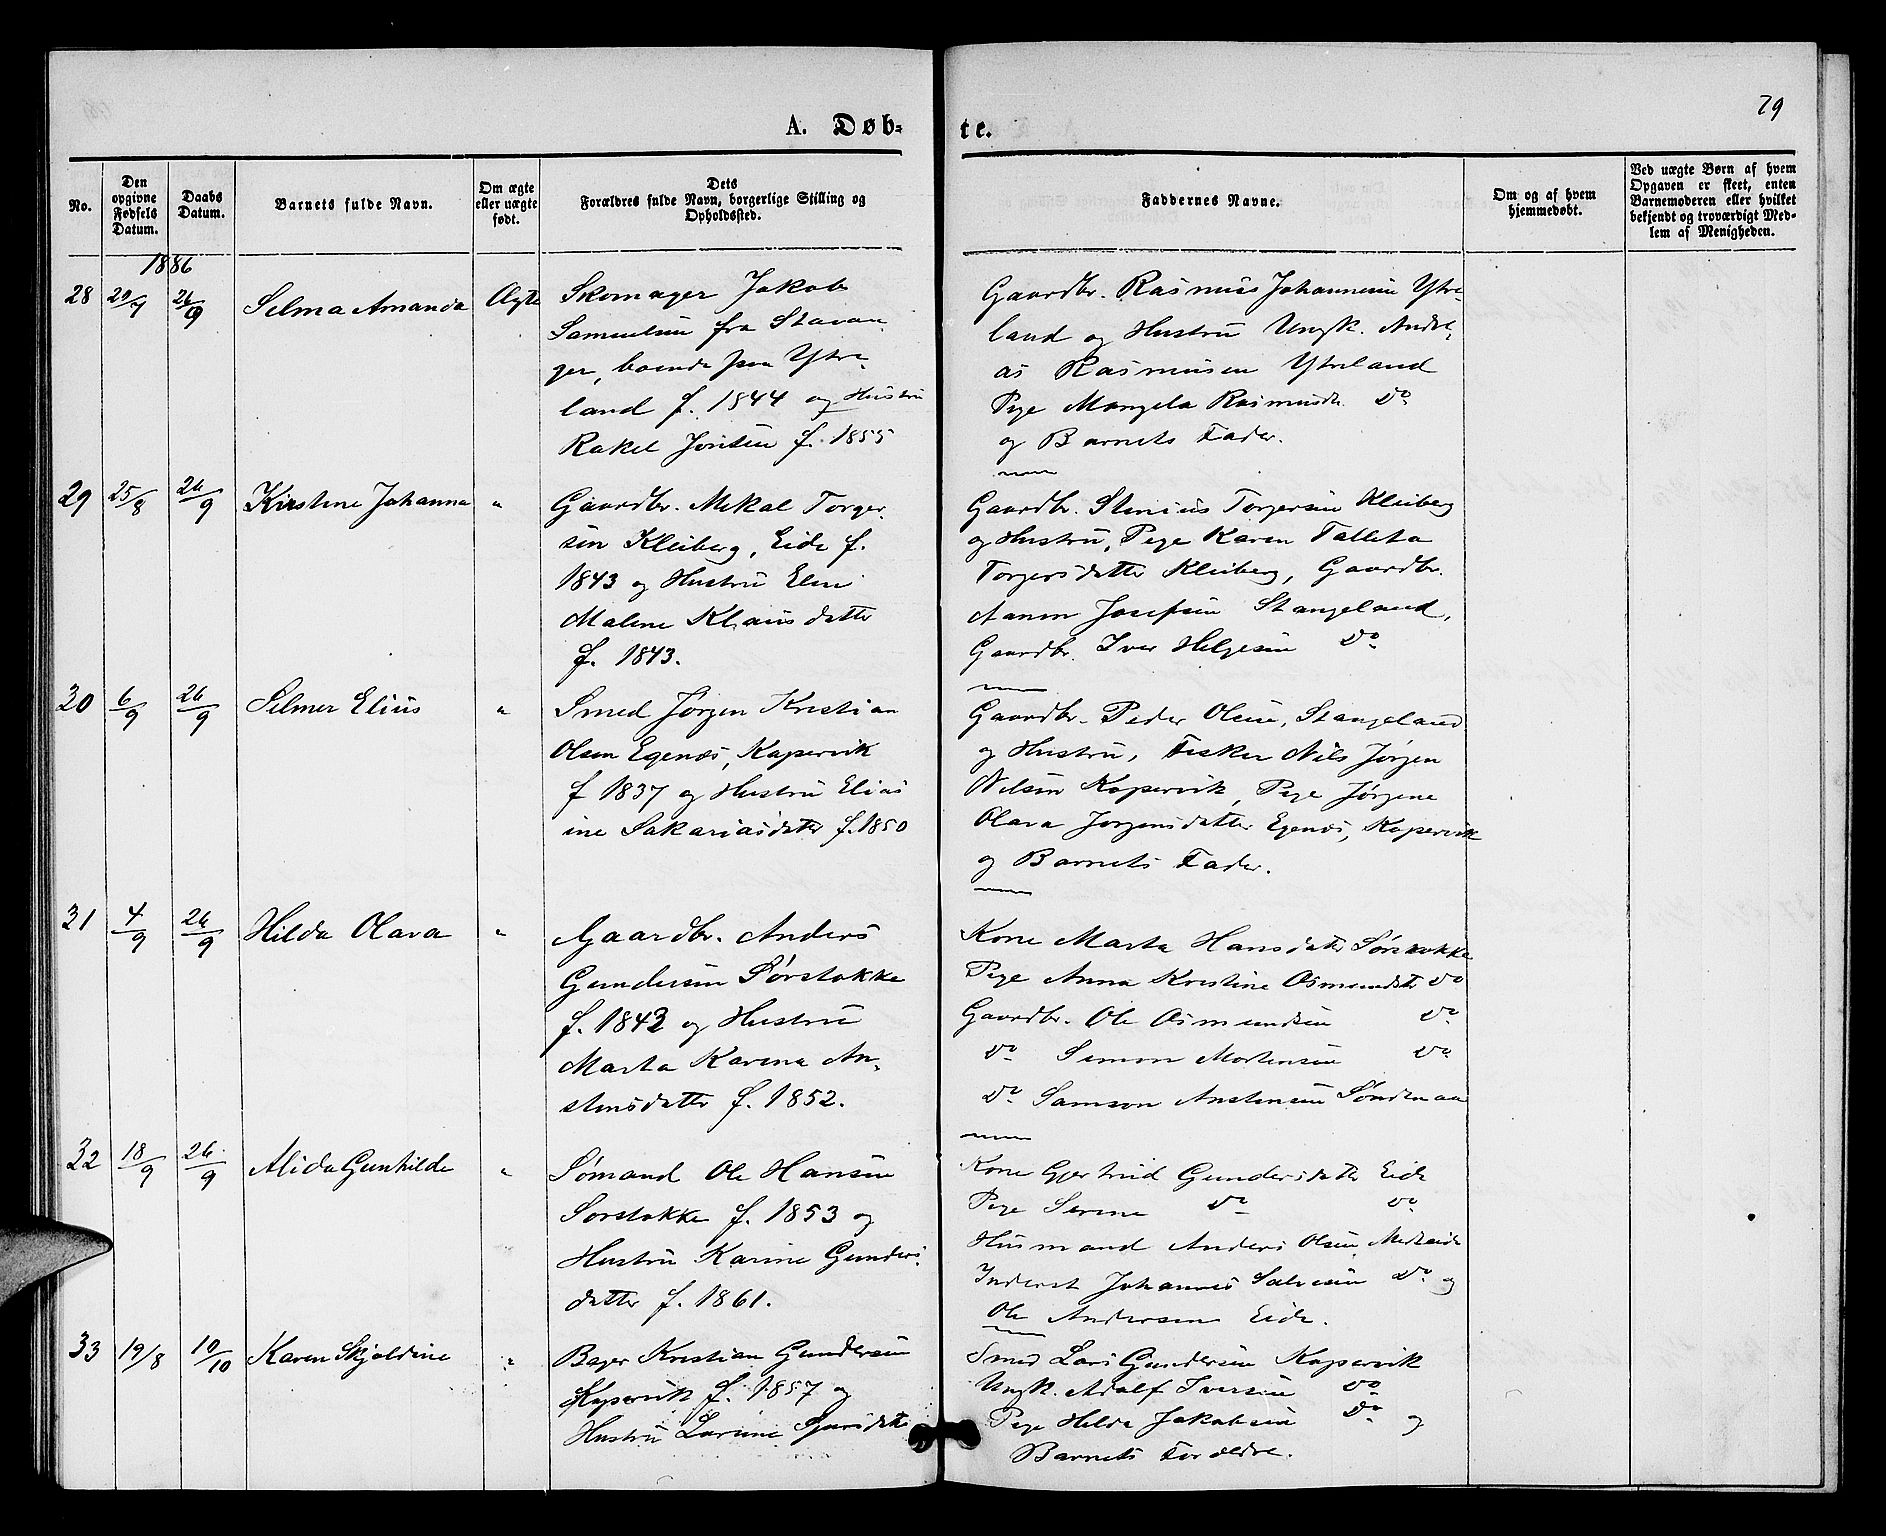 79
A. Døb-
te.
No.
Den opgivne Fødsels Datum.
Daabs Datum.
Barnets fulde Navn.
Om ægte eller uægte født.
Dets Forældres fulde Navn, borgerlige Stilling og Opholdssted.
Faddernes Navne.
Om og af hvem hjemmedøbt.
Ved uægte Børn af hvem Opgaven er skeet, enten Barnemoderen eller hvilket bekjendt og troværdigt Medlem af Menigheden.
1886
28 26/9 Selma Amanda Ægte
Skomager Jakob
Samuelsen fra Stavan-
ger, boende paa Ytre-
land f. 1844 og Hustru
Rakel f. 1855
Gaardbr. Rasmus Johannesen Ytre-
land og Hustru Ungk. Andre-
as Rasmusen Ytreland
Pige Mangela Rasmusdtr. Do
og Barnets Fader.
29 25/8 26/9 Kirstine Johanna "
Gaardbr. Mikal Torger-
sen Kleiberg, Eide f.
1843 og Hustru Elen
Malene Klausdatter
f. 1843.
Gaardbr. Stinius Torgersen Kleiberg
og Hustru, Pige Karen Talleta
Torgersdatter Kleiberg, Gaardbr.
Aanen Josefsen Stangeland,
Gaardbr. Iver Helgesen Do
30 6/9 26/9 Selmer Elius "
Smed Jørgen Kristian
Olsen Egenæs, Kopervik
f 1837 og Hustru Elias
ine Sakariasdatter f. 1850
Gaardbr. Peder Olsen, Stangeland
og Hustru, Fisker Nils Jørgen
Nilsen Kopervik, Pige Jørgine
Olava Jørgensdatter Egenæs, Kopervik
og Barnets Fader.
31 4/9 26/9 Hilda Olava "
Gaardbr. Anders
Gundersen Sørstokke
f. 1843 og Hustru
Marta Karina An-
stensdatter f. 1852.
Kone Marta Hansdatter Sørstokke
Pige Anna Kristine Osmundsdtr Do
Gaardbr. Ole Osmundsen Do
Do Simon Mortensen Do
Do Samson Anstensen Søndenaa
32 18/9 26/9 Alida Gunhilde "
Sømand Ole Hansen
Sørstokke f. 1853 og
Hustru Karine Gunders-
datter f. 1861.
Kone Gjertrud Gundersdatter Eide
Pige Serine Do Do
Husmand Anders Olsen
Inderst Johannes Salvesen Do og
Ole Andersen Eide.
33 19/8 10/10 Karen Skjoldine "
Bager Kristian Gundersen
Kopervik f. 1857 og
Hustru Larine
Smed Lars Gundersen Kopervik
Ungk. Adolf Iversen Do
Pige Hilda Jakobsen Do og
Barnets Forældre.